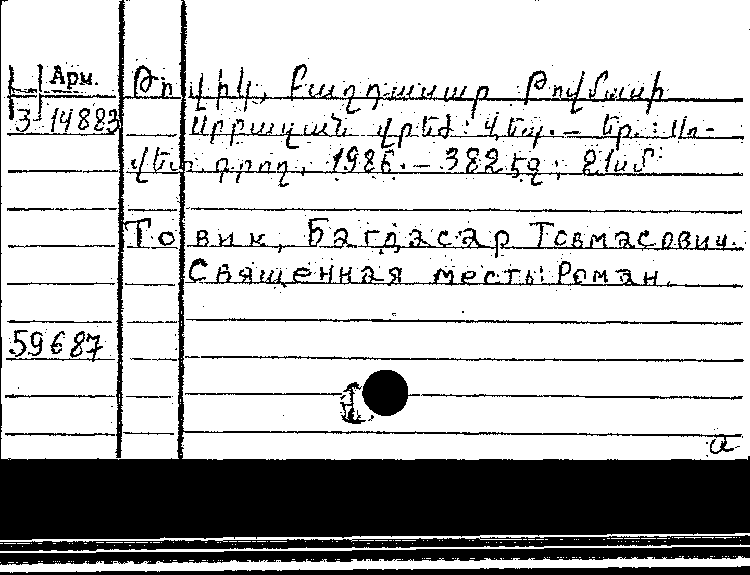 Арм. Թովիկ, Բաղդասար Թովմասի
3-14883 Սրբազան վրեժ: Վեպ. — Եր.: Սո-
վետ. գրող, 1986. — 382 էջ; 21 սմ:
Товик, Багдасар Товмасович.
Священная месть: Роман.
59687
а